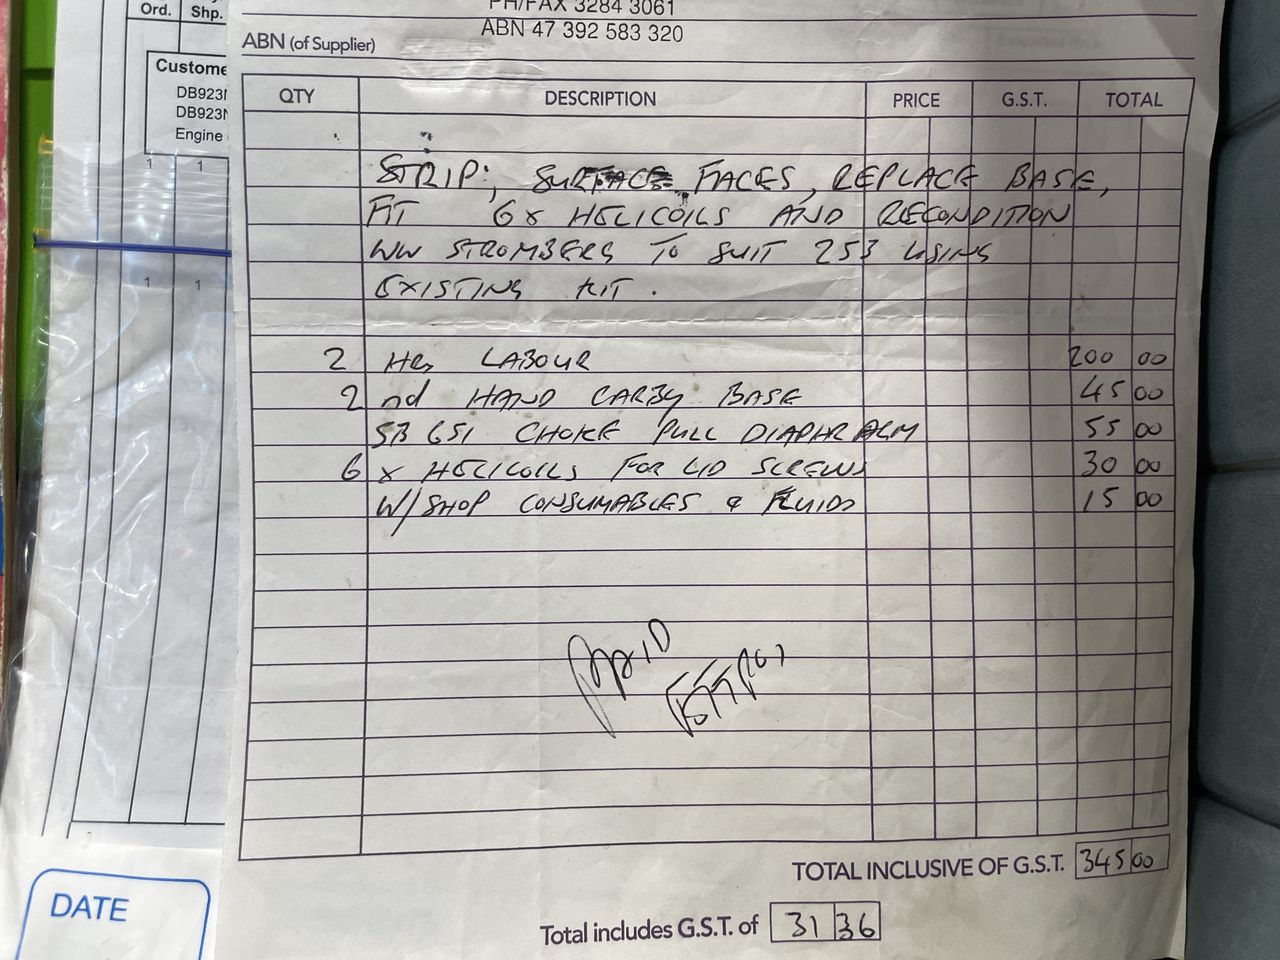 Ord. Shp.
Custome
DB923
DB923
Engine
1 1
1 1
DATE
PH/FAX 3284 3061
ABN 47 392 583 320
ABN (of Supplier)
QTY DESCRIPTION PRICE G.S.T. TOTAL
STRIP, SURFACE FACES, REPLACE BASE,
FIT 6x HELICOILS AND RECONDITION
WW STROMBERG TO SUIT 253 USING
EXISTING KIT.
2 HRS LABOUR 200 00
2nd HAND CARBY BASE 45 00
SB 651 CHOKE PULL DIAPHRAGM 55 00
6 x HELICOILS FOR LID SCREWS 30 00
W/SHOP CONSUMABLES & FLUIDS 15 00
PAID
EFTPOS
TOTAL INCLUSIVE OF G.S.T. 345 00
Total includes G.S.T. of 31 36